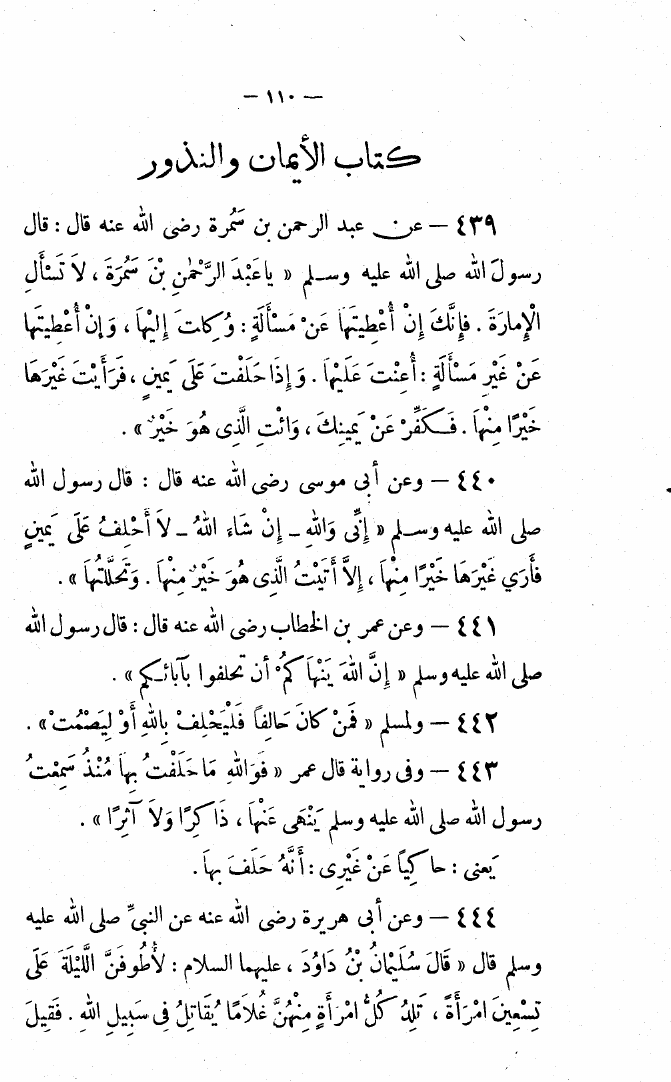 — ١١٠ —
كتاب الأيمان والنذور
٤٣٩ — عن عبد الرحمن بن سَمُرة رضى الله عنه قال : قال
رسولَ الله صلى الله عليه وسلم « يا عَبْدَ الرَّحْمٰنِ بْنَ سَمُرَةَ ، لاَ تَسْأَلِ
الْإِمارَةَ . فإِنَّكَ إِنْ أُعْطِيتَهَا عَنْ مَسْأَلَةٍ : وُكِلتَ إِلَيْهَا ، وَإِنْ أُعْطِيتَها
عَنْ غَيْرِ مَسْأَلَةٍ : أُعِنْتَ عَلَيْهَا . وَإِذَا حَلَفْتَ عَلَى يَمِينٍ ، فَرَأَيْتَ غَيْرَهَا
خَيْرًا مِنْهَا . فَكَفِّرْ عَنْ يَمِينِكَ ، وَائْتِ الَّذِى هُوَ خَيْرٌ » .
٤٤٠ — وعن أبى موسى رضى الله عنه قال : قال رسول الله
صلى الله عليه وسلم « إِنِّى وَاللهِ - إِنْ شَاءَ اللهُ - لاَ أَحْلِفُ عَلَى يَمِينٍ
فأَرَي غَيْرَهَا خَيْرًا مِنْهَا ، إِلاَّ أَتَيْتُ الَّذِى هُوَ خَيْرٌ مِنْهَا . وَتَحَلَّلْتُهَا » .
٤٤١ — وعن عمر بن الخطاب رضى الله عنه قال : قال رسول الله
صلى الله عليه وسلم « إِنَّ اللهَ يَنْهَاكُمْ أن تحلفوا بآبائكم » .
٤٤٢ — ولمسلم « فَمَنْ كَانَ حَالِفاً فَلْيَحْلِفْ بِاللهِ أَوْ لِيَصْمُتْ » .
٤٤٣ — وفى رواية قال عمر « فَوَاللهِ مَا حَلَفْتُ بِهَا مُنْذُ سَمِعْتُ
رسول الله صلى الله عليه وسلم يَنْهَى عَنْهَا ، ذَاكِرًا وَلاَ آثِرًا » .
يَعنى : حاكِياً عَنْ غَيْرِى : أَنَّهُ حَلَفَ بِهاَ .
٤٤٤ — وعن أبى هريرة رضى الله عنه عن النبيِّ صلى الله عليه
وسلم قال « قَالَ سُلَيْمَانُ بْنُ دَاوُدَ ، عليهما السلام : لَأَطُوفَنَّ اللَّيْلَةَ عَلَى
تِسْعِينَ امْرَأَةً ، تَلِدُ كُلُّ امْرَأَةٍ مِنْهُنَّ غُلاَمًا يُقَاتِلُ فِى سَبِيلِ اللهِ . فَقِيلَ